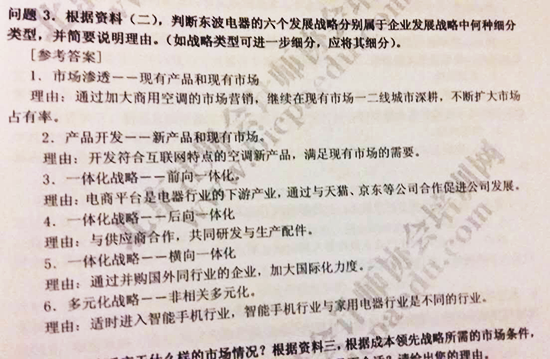 问题 3．根据资料（二），判断东波电器的六个发展战略分别属于企业发展战略中何种细分
类型，并简要说明理由。（如战略类型可进一步细分，应将其细分）。
[参考答案]
1．市场渗透——现有产品和现有市场
理由：通过加大商用空调的市场营销，继续在现有市场一二线城市深耕，不断扩大市场
占有率。
2．产品开发——新产品和现有市场。
理由：开发符合互联网特点的空调新产品，满足现有市场的需要。
3．一体化战略——前向一体化。
理由：电商平台是电器行业的下游产业，通过与天猫、京东等公司合作促进公司发展。
4．一体化战略——后向一体化
理由：与供应商合作，共同研发与生产配件。
5．一体化战略——横向一体化
理由：通过并购国外同行业的企业，加大国际化力度。
6．多元化战略——非相关多元化。
理由：适时进入智能手机行业，智能手机行业与家用电器行业是不同的行业。
什么样的市场情况？根据资料三，根据成本领先战略所需的市场条件，
请给出您的理由。